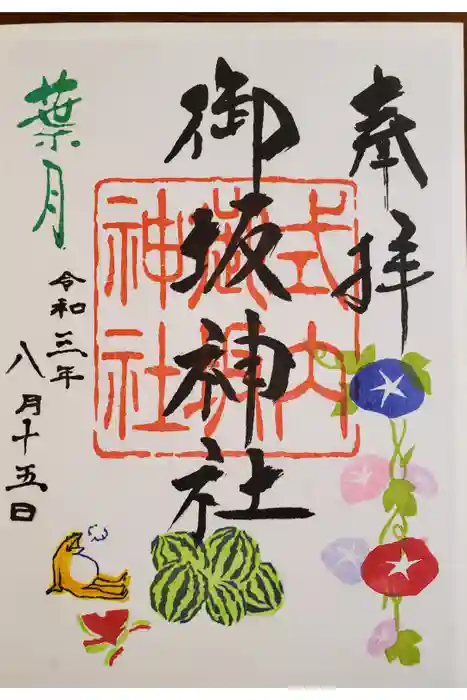 奉拝
御坂神社
式内
御坂
神社
葉月
令和三年
八月十五日